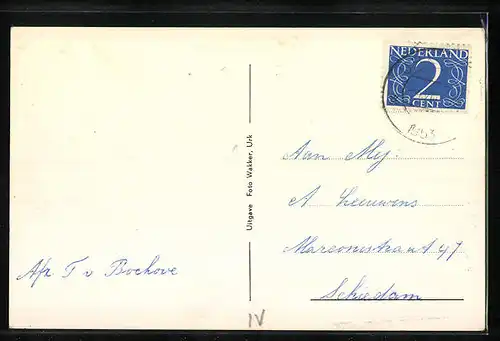 NEDERLAND
2
CENT
1953
Uitgave Foto Wakker, Urk
Aan Mej.
A Leeuwens
Marconistraat 47
Schiedam
Afz T v Bochove
IV